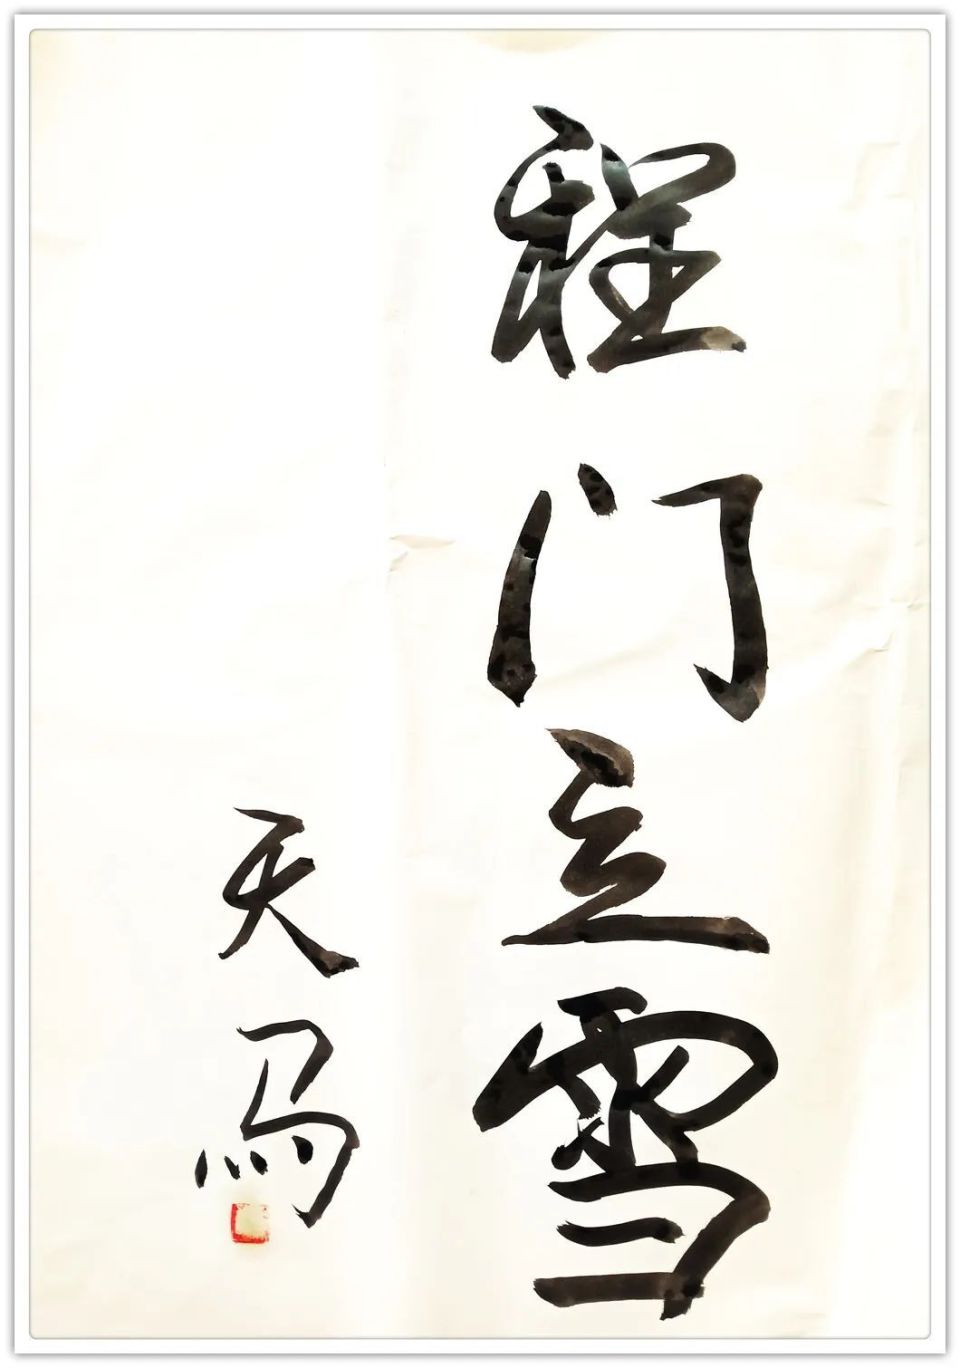 程门立雪
天马